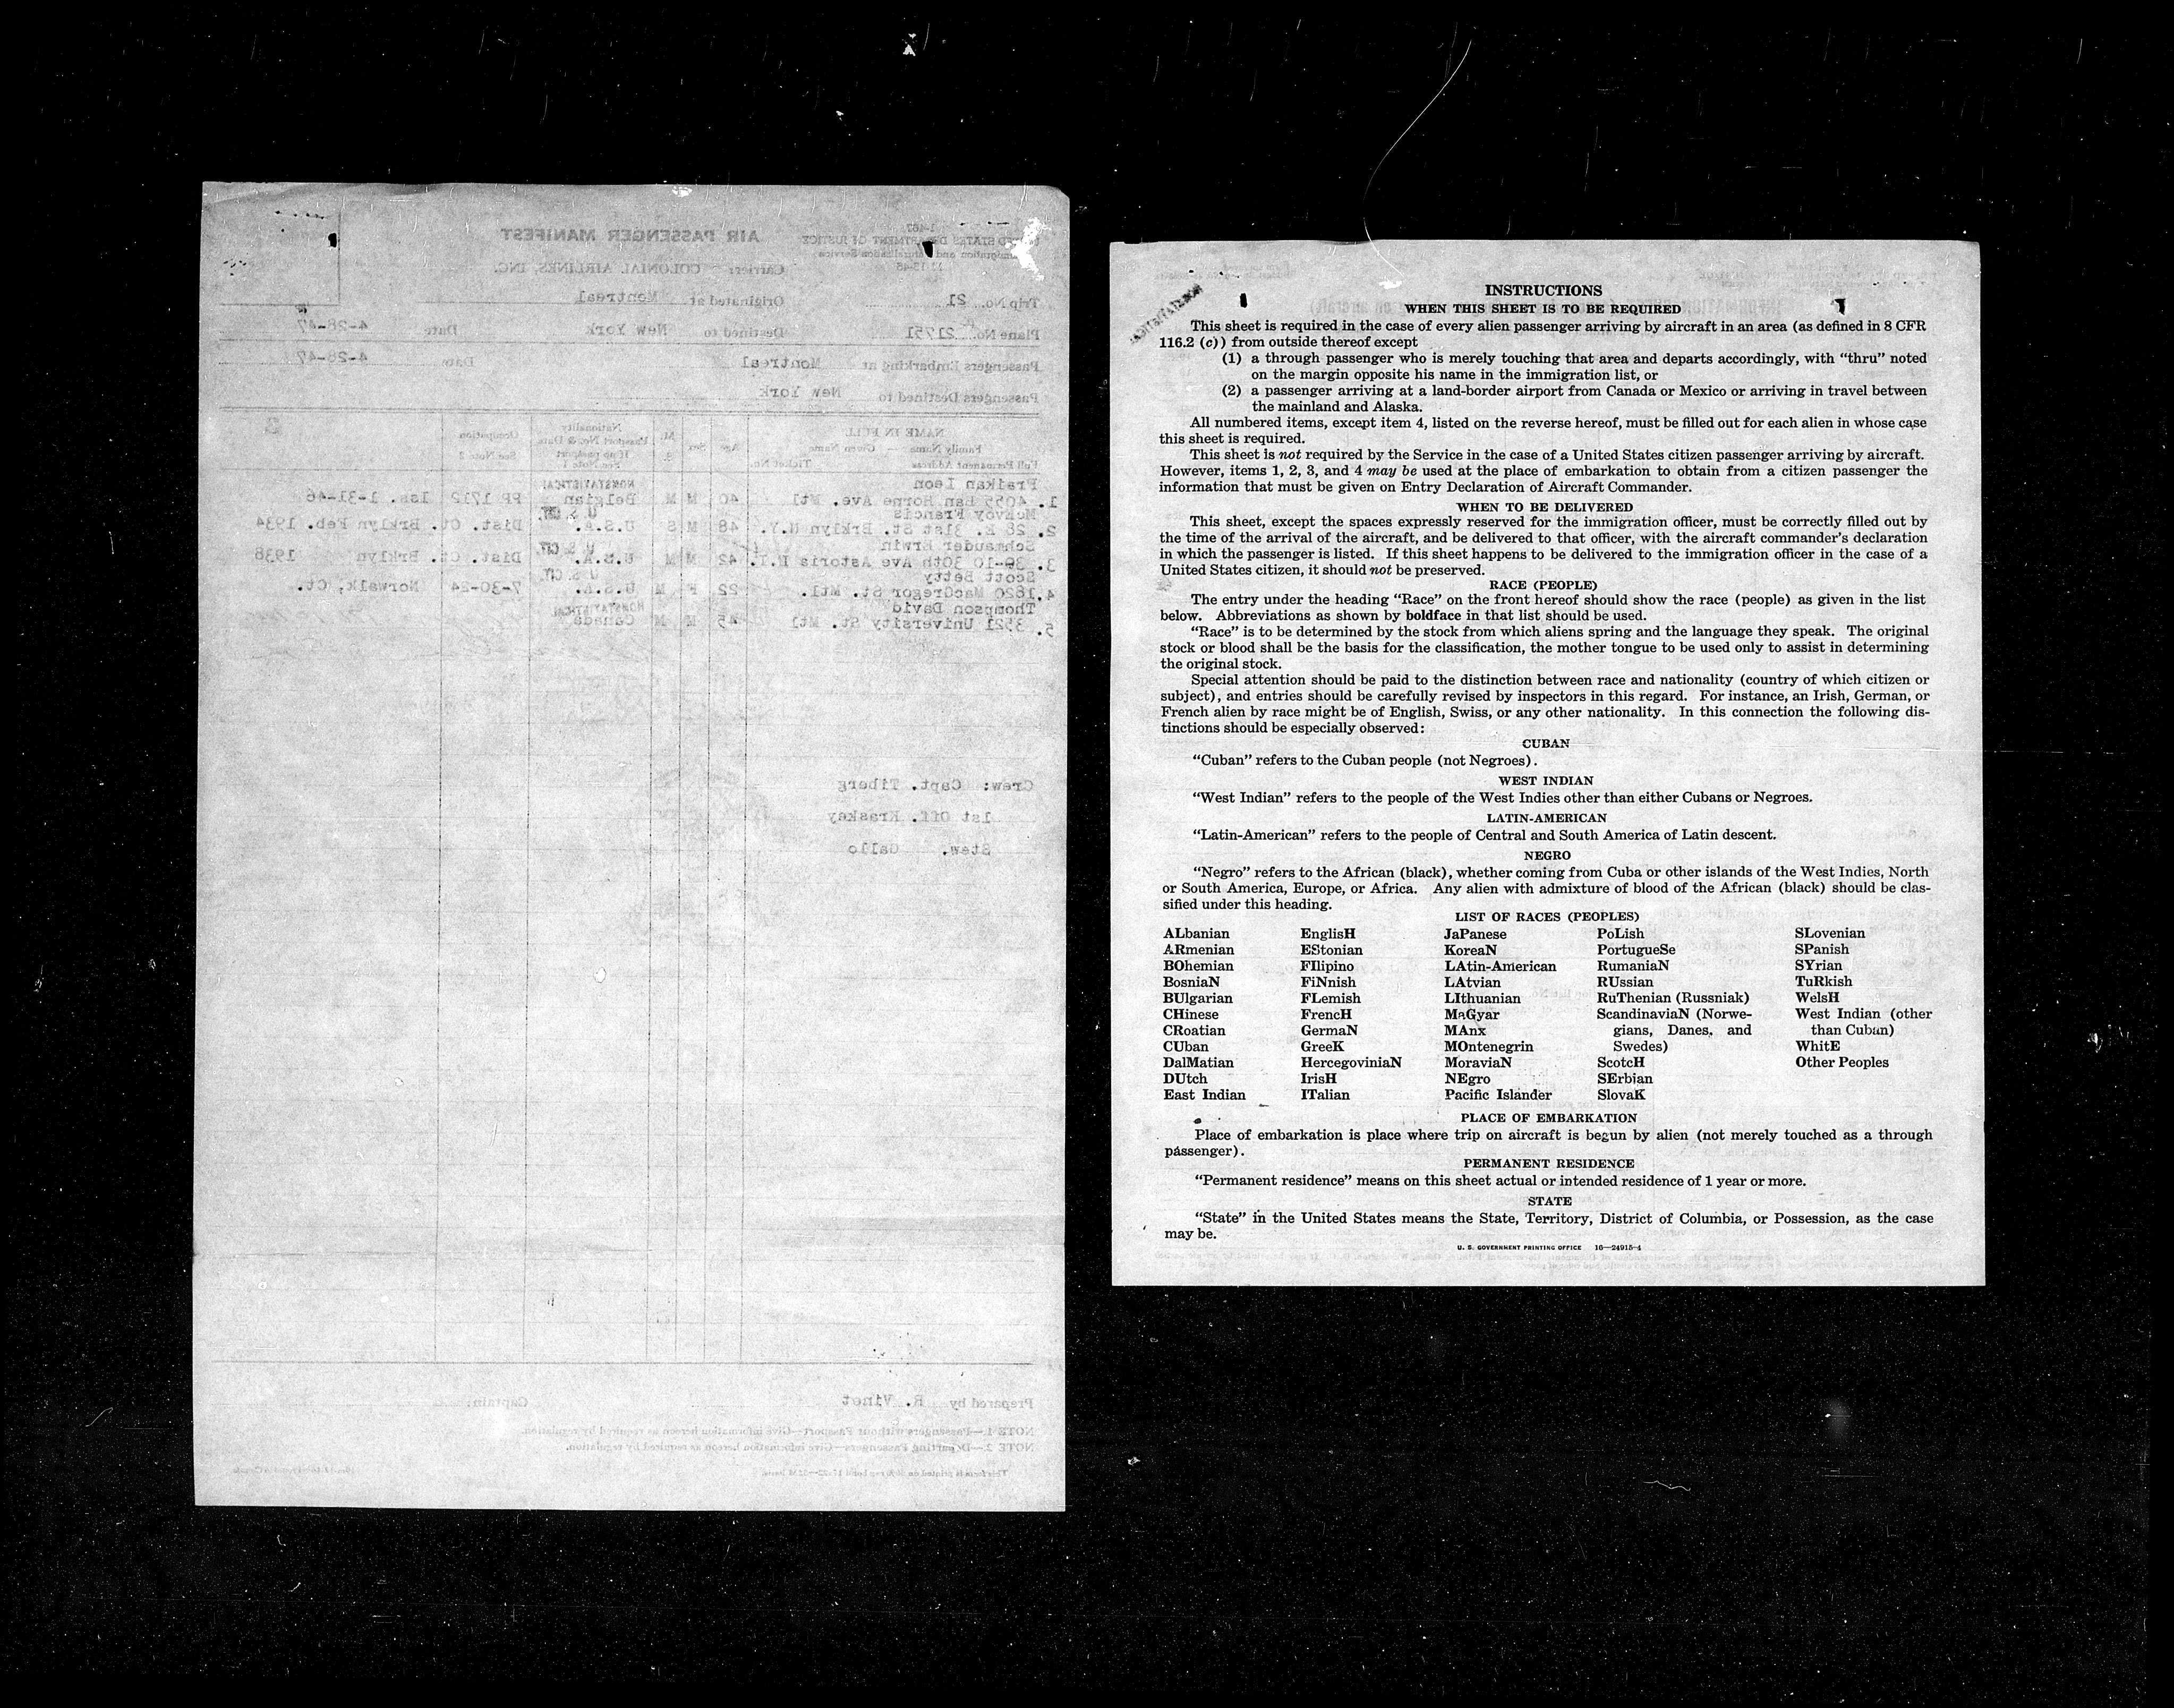 I-467
UNITED STATES DEPARTMENT OF JUSTICE
Immigration and Naturalization Service
AIR PASSENGER MANIFEST
Carrier:— COLONIAL AIRLINES, INC.
Trip No. 21 Originated at Montreal
Plane No. 21751 Destined to New York Date 4-28-47
Passengers Embarking at Montreal Date 4-28-47
Passengers Destined to New York
NAME IN FULL
Family Name — Given Name
Full Permanent Address Ticket No.
Age Sex M. S. Nationality Passport No. & Date If no passport See Note 1
Occupation See Note 2
Fraikan Leon
1. 4055 Ban Horne Ave. Mtl 40 M M Belgian PP 1712 Iss. 1-31-46
McEvoy Francis
2. 28 E. 31st St. Brklyn N.Y. 48 M S U.S.A. Dist. Ct. Brklyn Feb. 1934
Schmauder Erwin
3. 30-10 30th Ave Astoria N.Y. 42 M M U.S.A. Dist. Ct. Brklyn 1938
Scott Betty
4. 1820 MacGregor St. Mtl. 22 F M U.S.A. 7-30-24 Norwalk, Ct.
Thompson David
5. 3521 University St. Mtl 45 M M Canada
Crew: Capt. Tiberg
1st Off. Kraskey
Stew. Gallo
Prepared by R. Vinet Captain:
NOTE 1.—Passengers without Passport—Give information hereon as required by regulation.
NOTE 2.—Departing Passengers—Give information hereon as required by regulation.
INSTRUCTIONS
WHEN THIS SHEET IS TO BE REQUIRED
This sheet is required in the case of every alien passenger arriving by aircraft in an area (as defined in 8 CFR
116.2 (c)) from outside thereof except
(1) a through passenger who is merely touching that area and departs accordingly, with “thru” noted
on the margin opposite his name in the immigration list, or
(2) a passenger arriving at a land-border airport from Canada or Mexico or arriving in travel between
the mainland and Alaska.
All numbered items, except item 4, listed on the reverse hereof, must be filled out for each alien in whose case
this sheet is required.
This sheet is not required by the Service in the case of a United States citizen passenger arriving by aircraft.
However, items 1, 2, 3, and 4 may be used at the place of embarkation to obtain from a citizen passenger the
information that must be given on Entry Declaration of Aircraft Commander.
WHEN TO BE DELIVERED
This sheet, except the spaces expressly reserved for the immigration officer, must be correctly filled out by
the time of the arrival of the aircraft, and be delivered to that officer, with the aircraft commander's declaration
in which the passenger is listed. If this sheet happens to be delivered to the immigration officer in the case of a
United States citizen, it should not be preserved.
RACE (PEOPLE)
The entry under the heading “Race” on the front hereof should show the race (people) as given in the list
below. Abbreviations as shown by boldface in that list should be used.
“Race” is to be determined by the stock from which aliens spring and the language they speak. The original
stock or blood shall be the basis for the classification, the mother tongue to be used only to assist in determining
the original stock.
Special attention should be paid to the distinction between race and nationality (country of which citizen or
subject), and entries should be carefully revised by inspectors in this regard. For instance, an Irish, German, or
French alien by race might be of English, Swiss, or any other nationality. In this connection the following dis-
tinctions should be especially observed:
CUBAN
“Cuban” refers to the Cuban people (not Negroes).
WEST INDIAN
“West Indian” refers to the people of the West Indies other than either Cubans or Negroes.
LATIN-AMERICAN
“Latin-American” refers to the people of Central and South America of Latin descent.
NEGRO
“Negro” refers to the African (black), whether coming from Cuba or other islands of the West Indies, North
or South America, Europe, or Africa. Any alien with admixture of blood of the African (black) should be clas-
sified under this heading.
LIST OF RACES (PEOPLES)
ALbanian EnglisH JaPanese PoLish SLovenian
ARmenian EStonian KoreaN PortugueSe SPanish
BOhemian FIlipino LAtin-American RumaniaN SYrian
BosniaN FiNnish LAtvian RUssian TuRkish
BUlgarian FLemish LIthuanian RuThenian (Russniak) WelsH
CHinese FrencH MaGyar ScandinaviaN (Norwe- West Indian (other
CRoatian GermaN MAnx gians, Danes, and than Cuban)
CUban GreeK MOntenegrin Swedes) WhitE
DalMatian HercegoviniaN MoraviaN ScotcH Other Peoples
DUtch IrisH NEgro SErbian
East Indian ITalian Pacific Islander SlovaK
PLACE OF EMBARKATION
Place of embarkation is place where trip on aircraft is begun by alien (not merely touched as a through
passenger).
PERMANENT RESIDENCE
“Permanent residence” means on this sheet actual or intended residence of 1 year or more.
STATE
“State” in the United States means the State, Territory, District of Columbia, or Possession, as the case
may be.
U. S. GOVERNMENT PRINTING OFFICE 16—24915-4